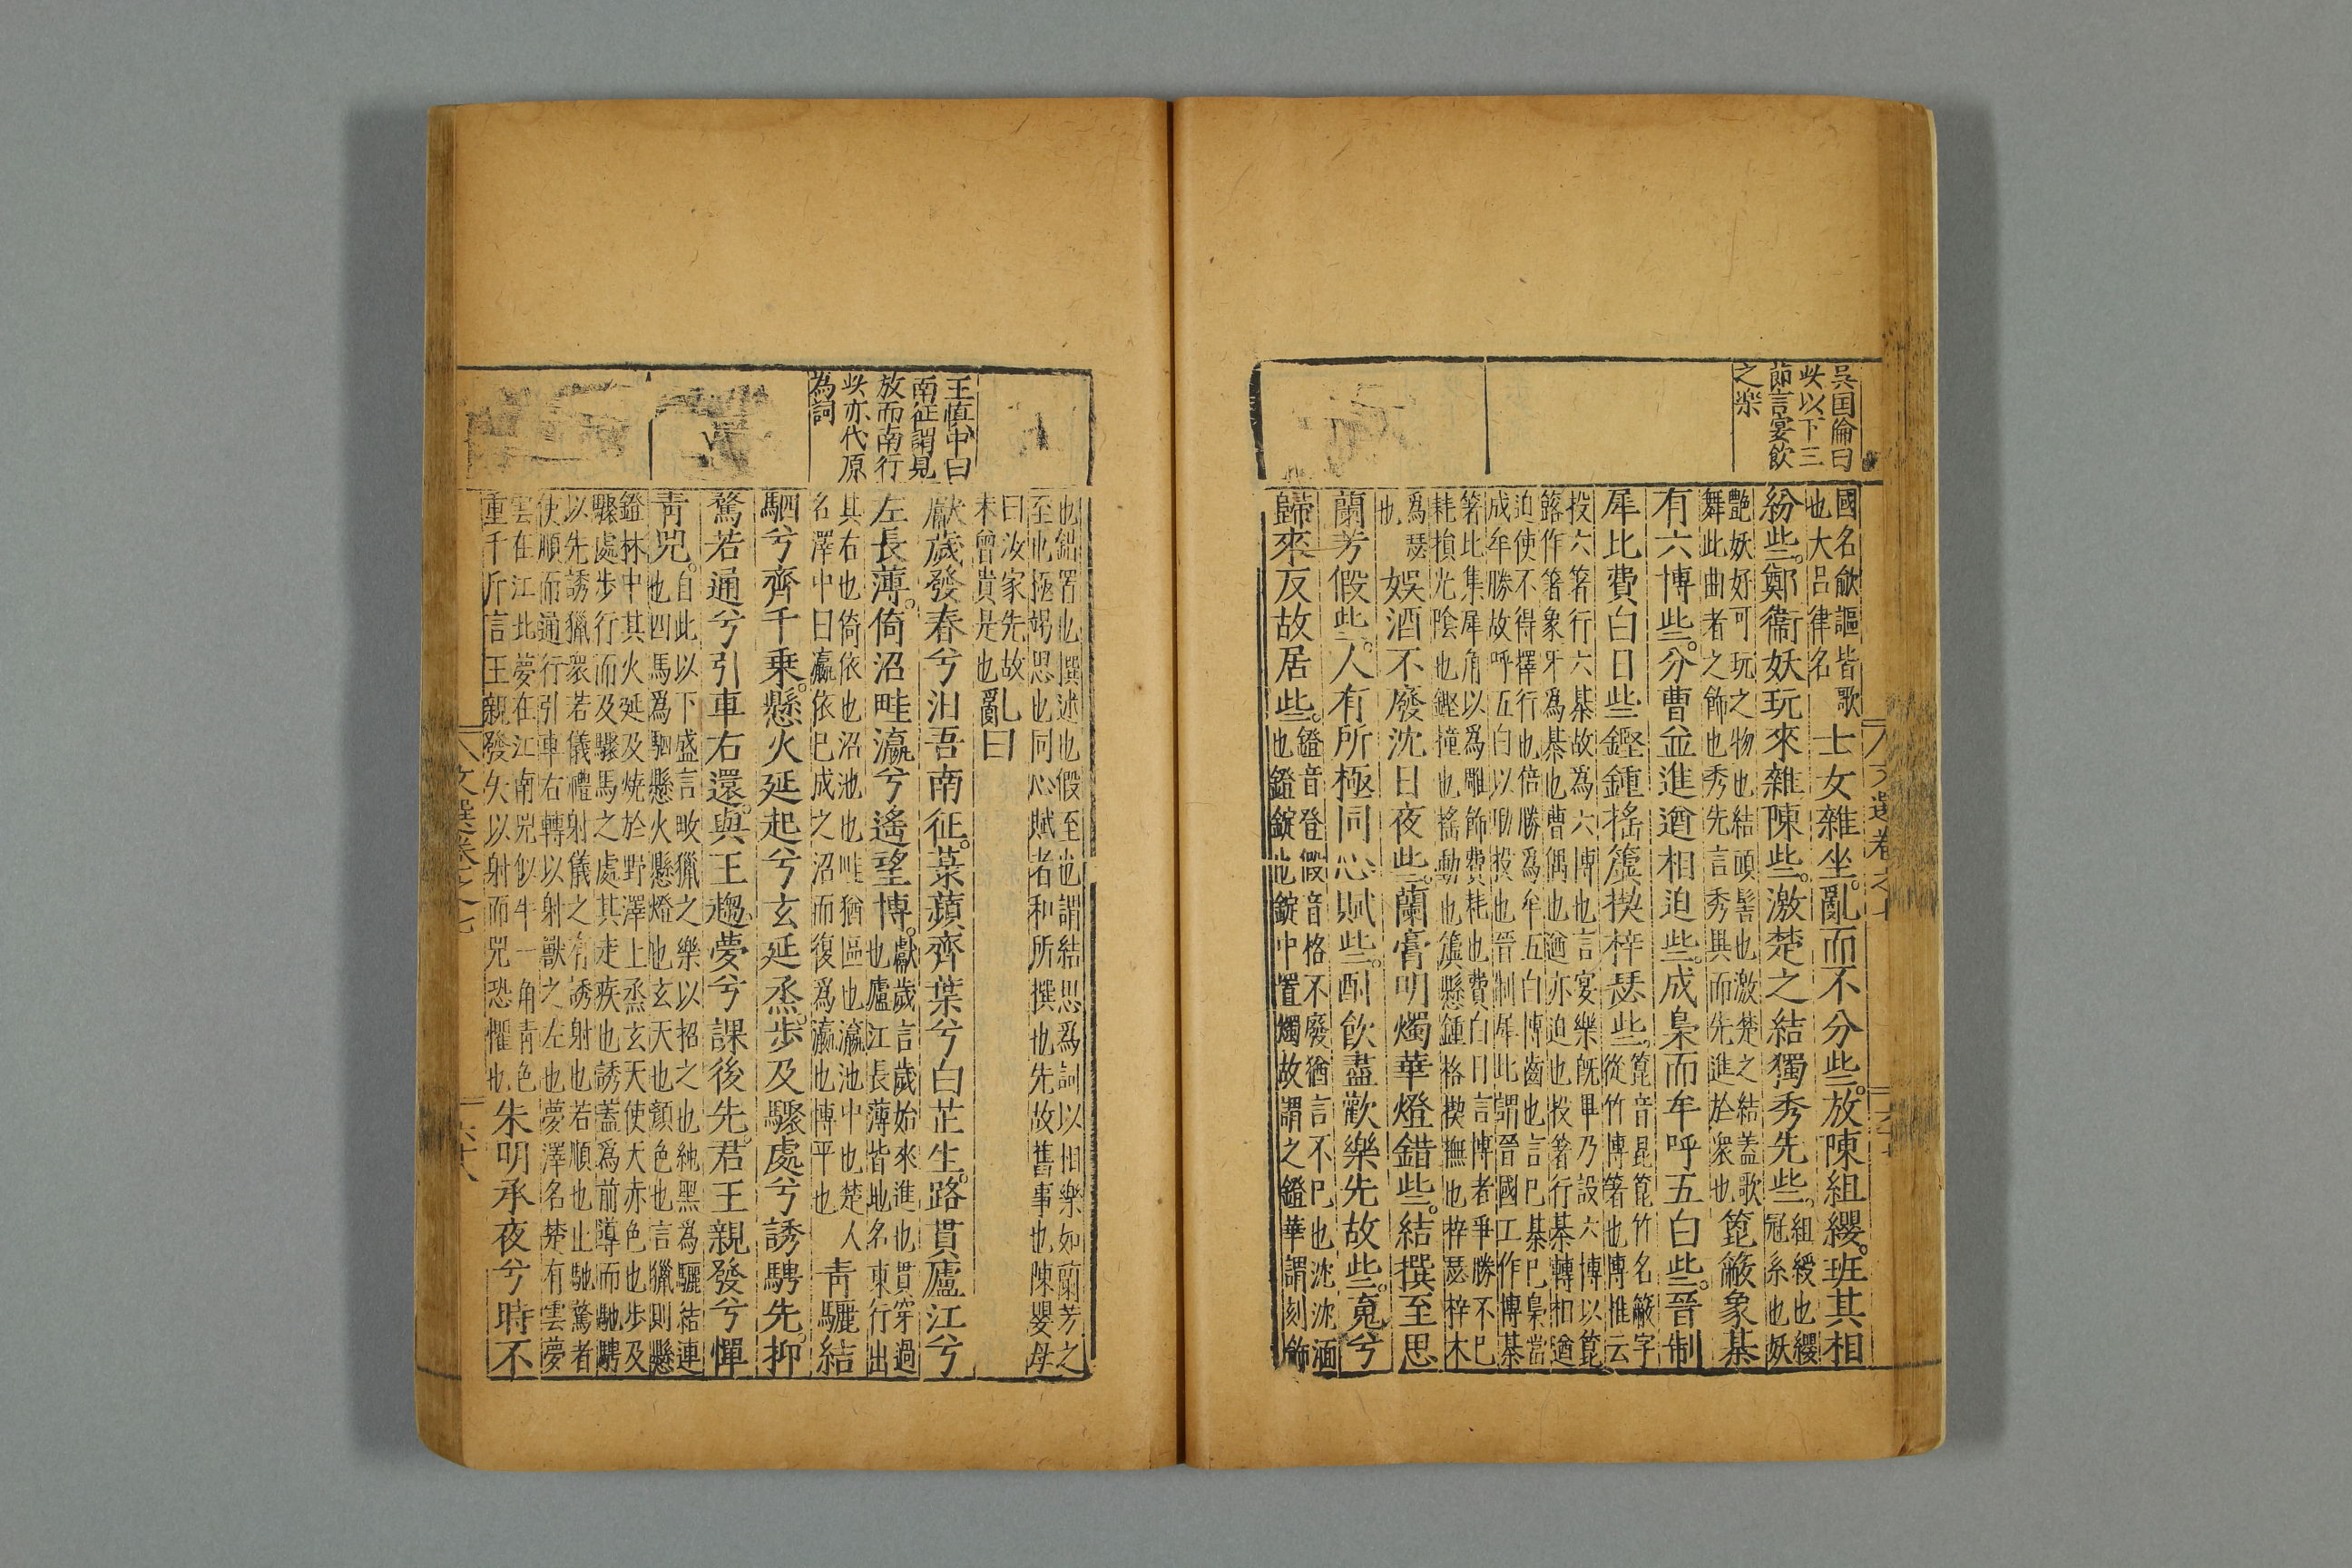 吳国倫曰
此以下三
節言宴飲
之楽
國名歈謳皆歌
也大呂律名
士女雜坐。亂而不分些。放陳組纓。班其相
紛些。鄭衞妖玩來雜陳些。激楚之結獨秀先些。
組綬也纓
冠系也妖
艶妖好可玩之物也結頭髻也激楚之結蓋歌
舞此曲者之飾也秀先言秀異而先進於衆也
箆簸象棊
有六博些。分曹並進遒相迫些。成梟而牟呼五白些。晉制
犀比費白日些鏗鍾搖簴揳梓瑟些。
箆音昆箆竹名簸字
從竹博箸也博惟云
投六箸行六棊故為六博也言宴樂旣畢乃設六博以箆
簬作箸象牙為棊也曹偶也遒亦迫也投箸行棊轉相遒
迫使不得擇行也倍勝為牟五白博齒也言已棊已梟當
成牟勝故呼五白以助投也晉制犀比謂晉國工作博棊
箸比集犀角以為雕飾費耗也費白日言博者爭勝不已
耗損光陰也鏗撞也搖動也簴懸鍾格揳撫也梓瑟梓木
爲瑟
也
娛酒不廢沈日夜些。蘭膏明燭華燈錯些。結撰至思
蘭芳假些。人有所極同心賦些。酎飲盡歡樂先故些。䰟兮
歸來反故居些。
鐙音登假音格不廢猶言不已也沈沈湎
也鐙錠也錠中置燭故謂之鐙華謂刻飾
文選卷之七
王慎中曰
南征謂見
放而南行
此亦代原
為詞
也錯置也撰述也假至也謂結思爲詞以相樂如蘭芳之
至也極竭思也同心賦者和所撰也先故舊事也陳嬰母
曰汝家先故
未曾貴是也
亂曰
獻歲發春兮汨吾南征。菉蘋齊葉兮白芷生。路貫廬江兮
左長薄。倚沼畦瀛兮遙望博。
獻歲言歲始來進也貫穿過
也廬江長薄皆地名東行出
其右也倚依也沼池也畦猶區也瀛池中也楚人
名澤中曰瀛依已成之沼而復爲瀛也博平也
青驪結
駟兮齊千乗。懸火延起兮玄延烝。步及驟處兮誘騁先。抑
騖若通兮引車右還。與王趨夢兮課後先。君王親發兮憚
青兕。
自此以下盛言畋獵之樂以招之也純黑為驪結連
也四馬爲駟懸火懸燈也玄天也顏色也言獵則懸
鐙林中其火延及燒於野澤上烝玄天使天赤色也步及
驟處步行而及驟馬之處其走疾也誘蓋爲前導而馳騁
以先誘獵衆若儀禮射儀之有誘射也若順也止馳騖者
使順而通行引車右轉以射獸之左也夢澤名楚有雲夢
雲在江北夢在江南兕似牛一角青色
重千斤言王親發矢以射而兕恐懼也
朱明承夜兮時不
文選卷之七
六十八